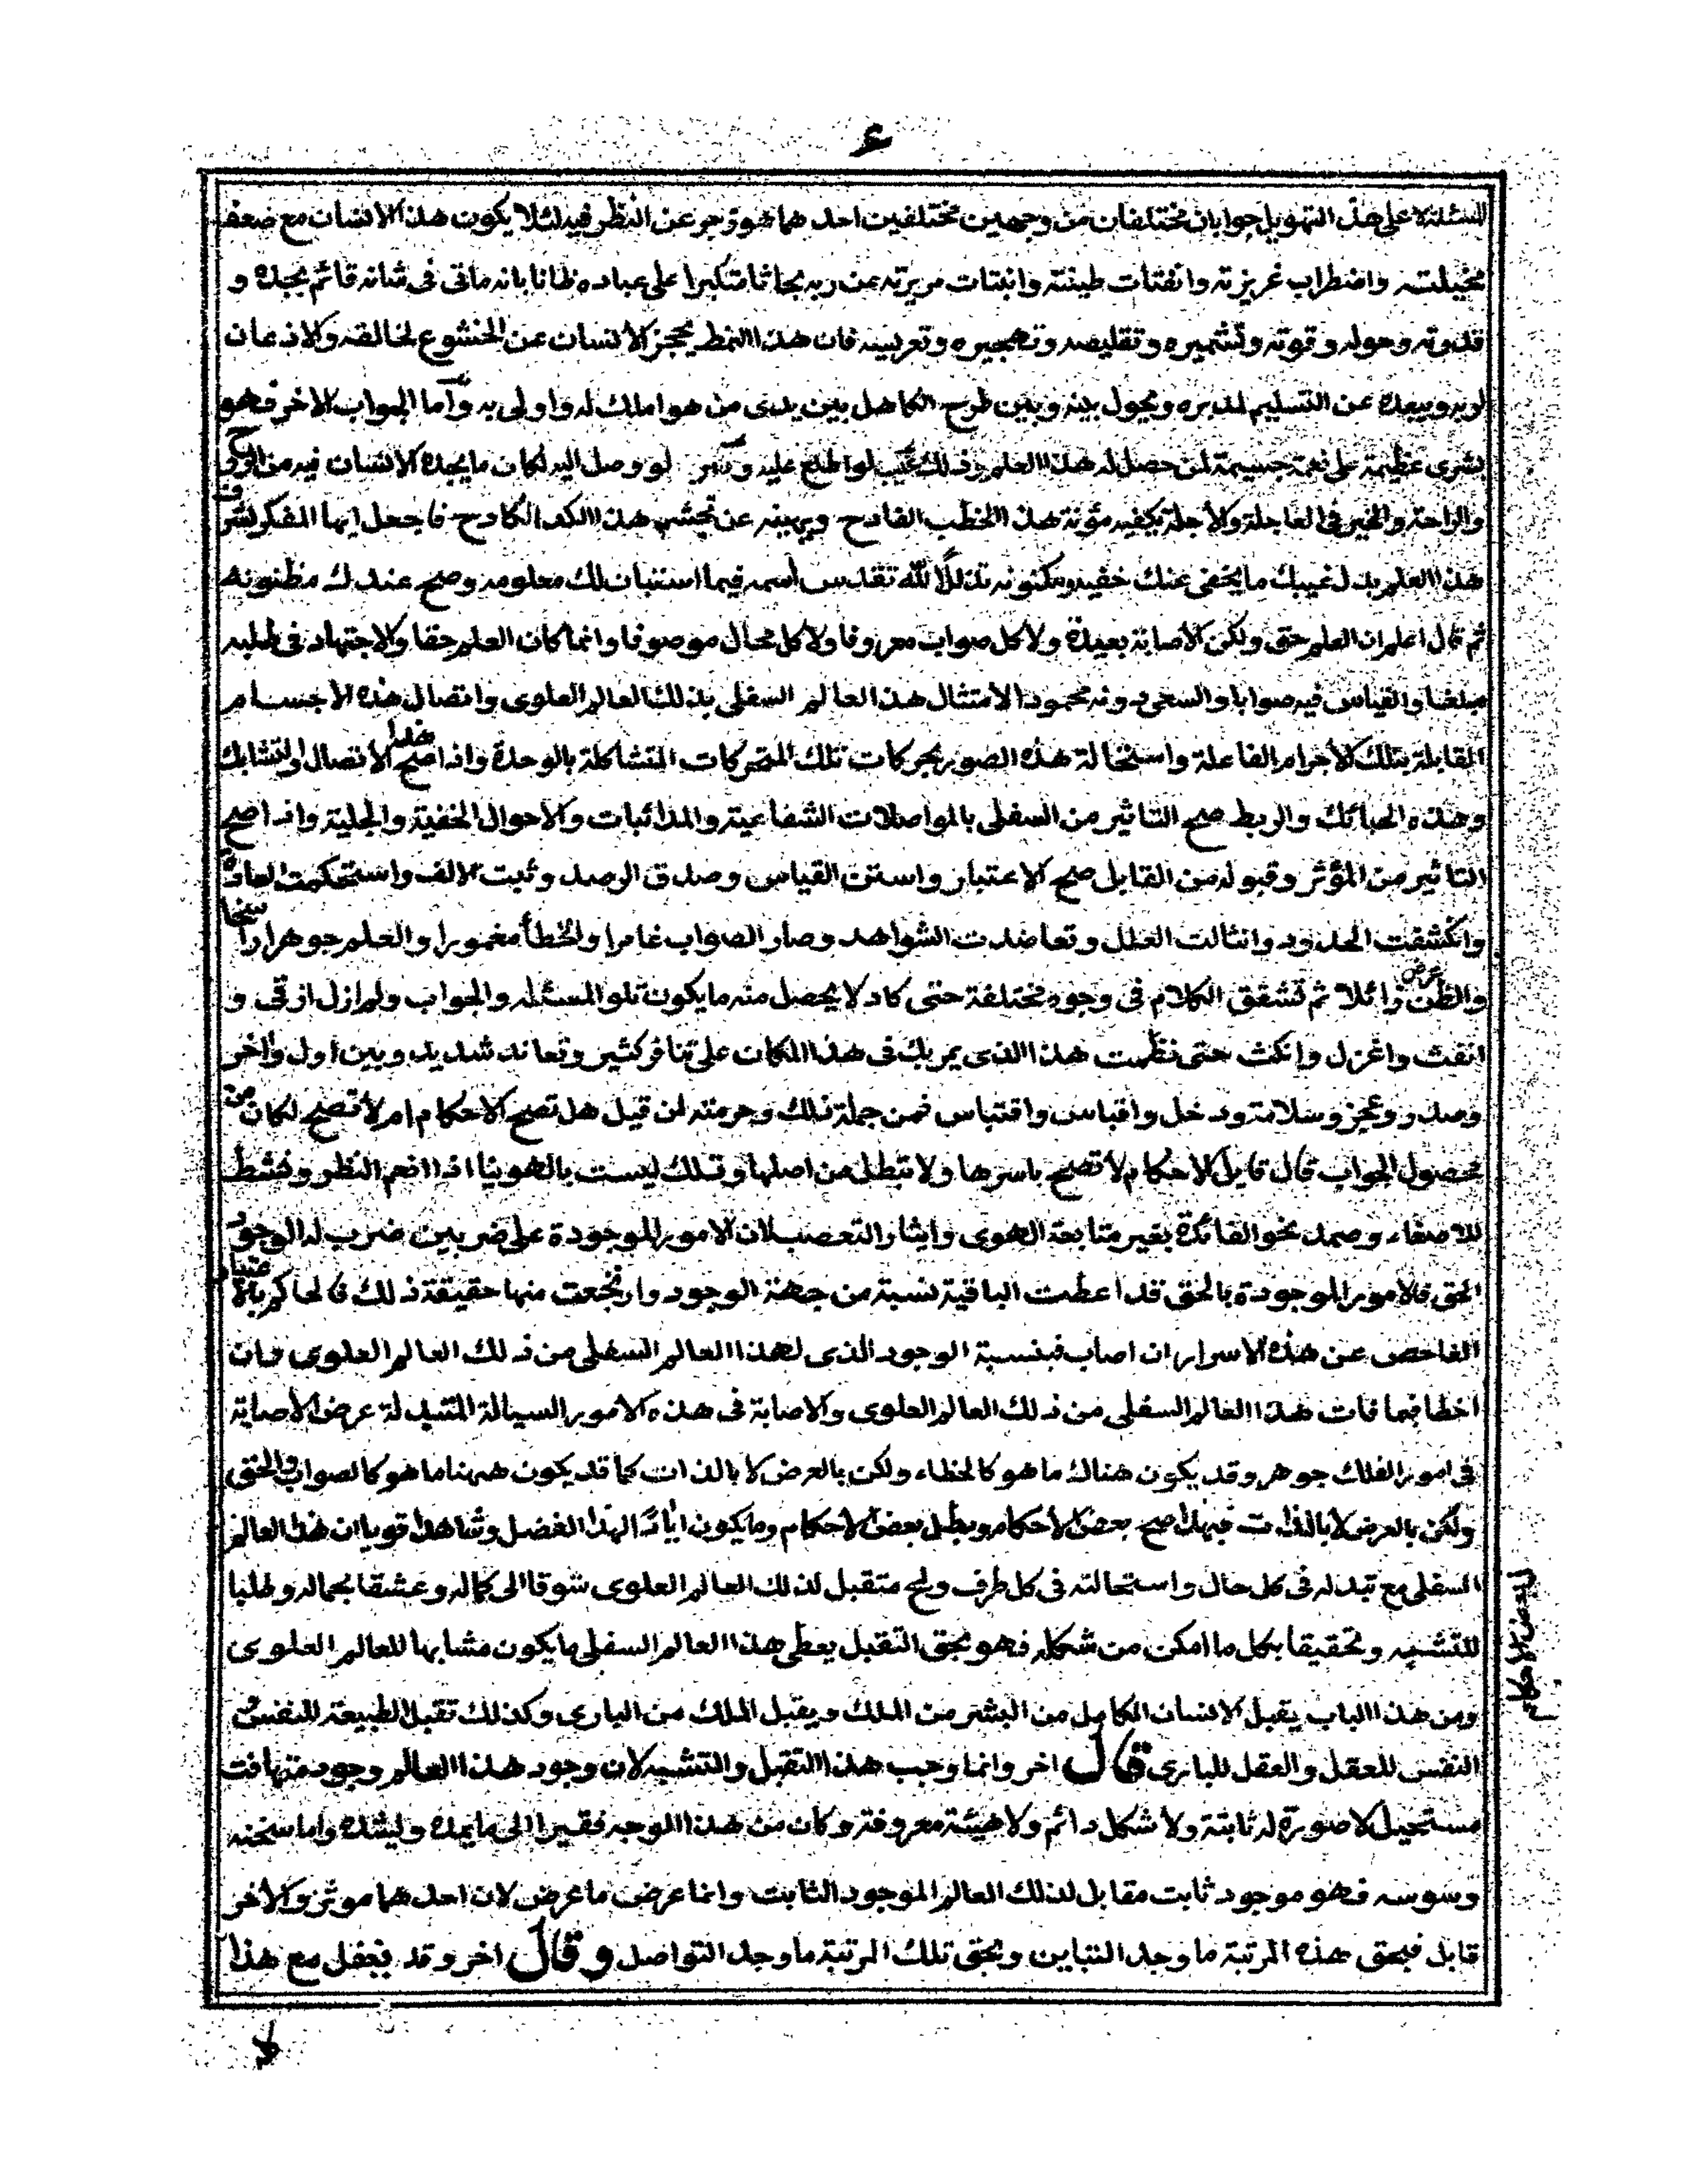 ٤
المسئلة على هذا التهويل جوابان مختلفان من وجهين مختلفين احدهما هو زجر عن النظر فيه لئلا يكون هذا الانسان مع ضعف
مخيلته واضطراب غريزته وانفتات طينته وانبتات مريرته عن ربه بحاثا متكبرا على عباده ظانا بانه مأتى فى شانه قائم بجده و
قدرته وحوله وقوته وتشميره وتقليصه وتهجيره وتعريسه فان هذا النمط يحجز الانسان عن الخشوع لخالقه والاذعان
لربه ويبعده عن التسليم لمدبره ويحول بينه وبين طرح الكاهل بين يدى من هو املك له واولى به واما الجواب الاخر فهو
بشرى عظيمة على نعمة جسيمة لمن حصل له هذا العلم وذلك غيب لو اطلع عليه وسر لو وصل اليه لكان ما يجده الانسان فيه من الروح
والراحة والخير فى العاجلة والاجلة يكفيه مؤنة هذا الخطب الفادح ويهينه عن تجشم هذا الكد الكادح فاجعل ايها المفكر لشرف
هذا العلم بدل غيبك ما يخفى عنك خفيه ومكنونه تذللا لله تقدس اسمه فيما استبان لك معلومه وصح عندك مظنونه
ثم قال اعلم ان العلم حق ولكن الاصابة بعيدة ولا كل صواب معروفا ولا كل محال موصوفا وانما كان العلم حقا والاجتهاد فى طلبه
مبلغا والقياس فيه صوابا والسعى دونه محمودا لامتثال هذا العالم السفلى بذلك العالم العلوى واتصال هذه الاجسام
القابلة بتلك الاجرام الفاعلة واستحالة هذه الصور بحركات تلك المتحركات المتشاكلة بالوحدة واذا صح هذا الاتصال والتشابك
وهذه الحبائك والربط صح التاثير من السفلى بالمواصلات الشفاعية والمدائبات والاحوال الخفية والجلية واذا صح
التاثير من المؤثر وقبوله من القابل صح الاعتبار واستن القياس وصدق الرصد وثبت الالف واستحكمت العادة
وانكشفت الحدود وانثالت العلل وتعاضدت الشواهد وصار الصواب غامرا والخطأ مغمورا والعلم جوهرا راسخا
والظن عرض زائلا ثم تشقق الكلام فى وجوه مختلفة حتى كاد لا يحصل منه ما يكون تلو المسئله والجواب ولم ازل ازقى و
انفث واغزل وانكث حتى نظمت هذا الذى يمر بك فى هذا المكان على تنافر كثير وتعاند شديد وبين اول واخر
وصدر وعجز وسلامة ودخل واقباس واقتباس فمن جملة ذلك وحرمته لمن قيل هل تصح الاحكام ام لا تصح لكان من
محصول الجواب قال قايل الاحكام لا تصح باسرها ولا تبطل من اصلها وتلك ليست بالهوينا اذا انعم النظر ونشط
للاصغاء وصمد نحو الفائدة بغير متابعة الهوى وايثار التعصب لان الامور الموجودة على ضربين ضرب له الوجود
الحق فالامور الموجودة بالحق قد اعطت الباقية نسبة من جهة الوجود وارتجعت منها حقيقة ذلك فالحاكم باة عتبار
الفاحص عن هذه الاسرار ان اصاب فبنسبة الوجود الذى لهذا العالم السفلى من ذلك العالم العلوى وان
اخطا فبما فات هذا العالم السفلى من ذلك العالم العلوى والاصابة فى هذه الامور السيالة المتبدلة عرض الاصابة
فى امور الفلك جوهر وقد يكون هناك ما هو كالخطاء ولكن بالعرض لا بالذات كما قد يكون ههنا ما هو كالصواب والحق
ولكن بالعرض لا بالذات فبهذا صح بعض الاحكام وبطل بعض الاحكام وما يكون ايانة الهذا الفضل وشاهدا قويا ان هذا العالم
السفلى مع تبدله فى كل حال واستحالته فى كل طرف ولمح متقبل لذلك العالم العلوى شوقا الى كماله وعشقا بجماله وطلبا
للتشبه وتحقيقا بكل ما امكن من شكله فهو بحق التقبل يعطى هذا العالم السفلى ما يكون مشابها للعالم العلوى
ومن هذا الباب يقبل الانسان الكامل من البشر من الملك ويقبل الملك من البارى وكذلك تقبل الطبيعة للنفس
النفس للعقل والعقل للبارى قال اخر وانما وجب هذا التقبل والتشبه لان وجود هذا العالم وجود متهافت
مستحيل لا صورة له ثابتة ولا شكل دائم ولا هيئة معروفة وكان من هذا الوجه فقيرا الى ما يمده ويشده واما سنخه
وسوسه فهو موجود ثابت مقابل لذلك العالم الموجود الثابت وانما عرض ما عرض لان احدهما موثر والاخر
قابل فبحق هذه المرتبة ما وجد التباين وبحق تلك المرتبة ما وجد التواصل وقال اخر وقد يغفل مع هذا
لا